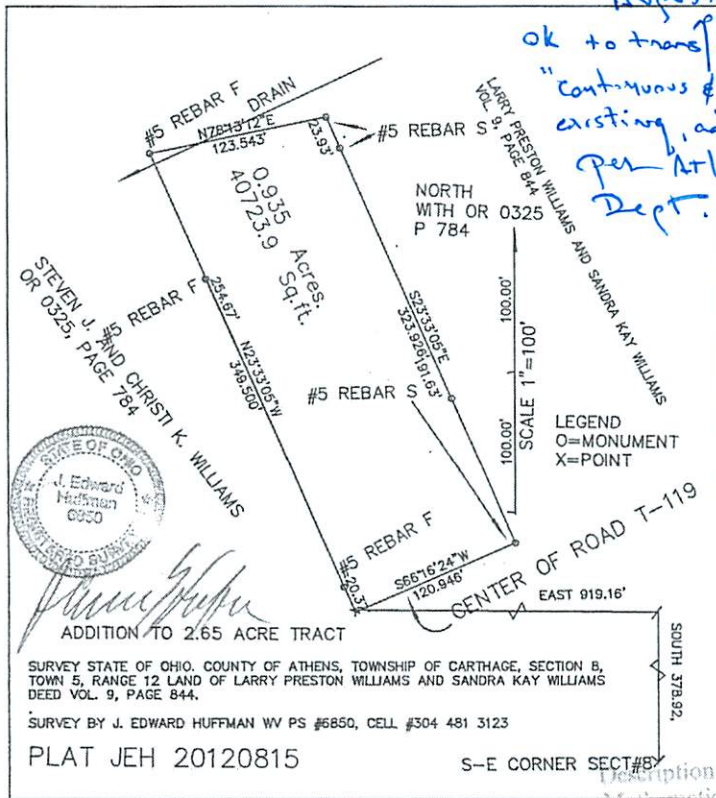 ok to transf
"contiguous &
existing, ad
per Ath
Dept.
#5 REBAR F
DRAIN
N78°13'12"E
123.543'
23.93'
#5 REBAR S
LARRY PRESTON WILLIAMS AND SANDRA KAY WILLIAMS
VOL. 9, PAGE 844
0.935 Acres.
40723.9 Sq.ft.
NORTH
WITH OR 0325
P 784
STEVEN J. AND CHRISTI K. WILLIAMS
OR 0325, PAGE 784
#5 REBAR F
254.67'
N23°33'05"W
349.500'
S23°33'05"E
323.926'
191.63'
100.00'
100.00'
SCALE 1"=100'
#5 REBAR S
LEGEND
O=MONUMENT
X=POINT
STATE OF OHIO
J. Edward
Huffman
6850
#5 REBAR F
20.37'
S66°16'24"W
120.946'
CENTER OF ROAD T-119
EAST 919.16'
SOUTH 378.92,
ADDITION TO 2.65 ACRE TRACT
SURVEY STATE OF OHIO. COUNTY OF ATHENS, TOWNSHIP OF CARTHAGE, SECTION 8,
TOWN 5, RANGE 12 LAND OF LARRY PRESTON WILLIAMS AND SANDRA KAY WILLIAMS
DEED VOL. 9, PAGE 844.
SURVEY BY J. EDWARD HUFFMAN WV PS #6850, CELL #304 481 3123
PLAT JEH 20120815
S-E CORNER SECT#8
Description